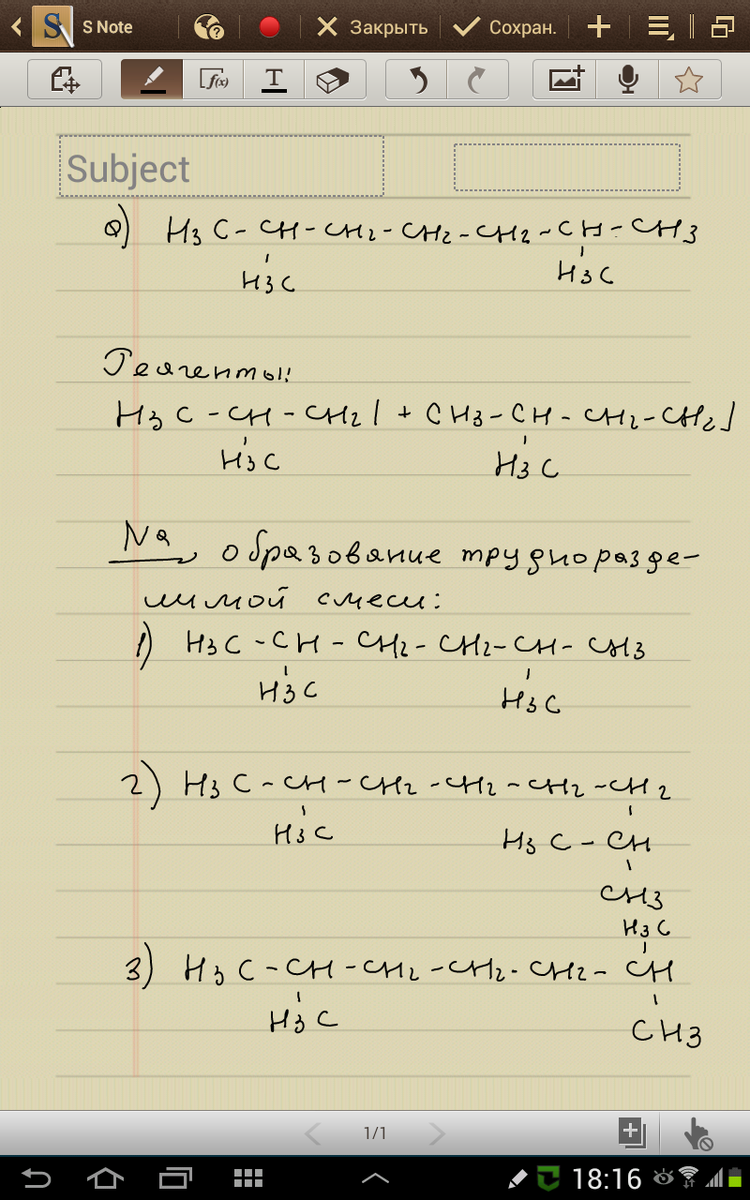 S Note
Закрыть
Сохран.
f(x)
T
Subject
а) H3C-CH-CH2-CH2-CH2-CH-CH3
H3C H3C
Реагенты:
H3C-CH-CH2I + CH3-CH-CH2-CH2I
H3C H3C
Na, образование трудноразде-
лимой смеси:
1) H3C-CH-CH2-CH2-CH-CH3
H3C H3C
2) H3C-CH-CH2-CH2-CH2-CH2
H3C H3C-CH
CH3
H3C
3) H3C-CH-CH2-CH2-CH2-CH
H3C CH3
1/1
18:16